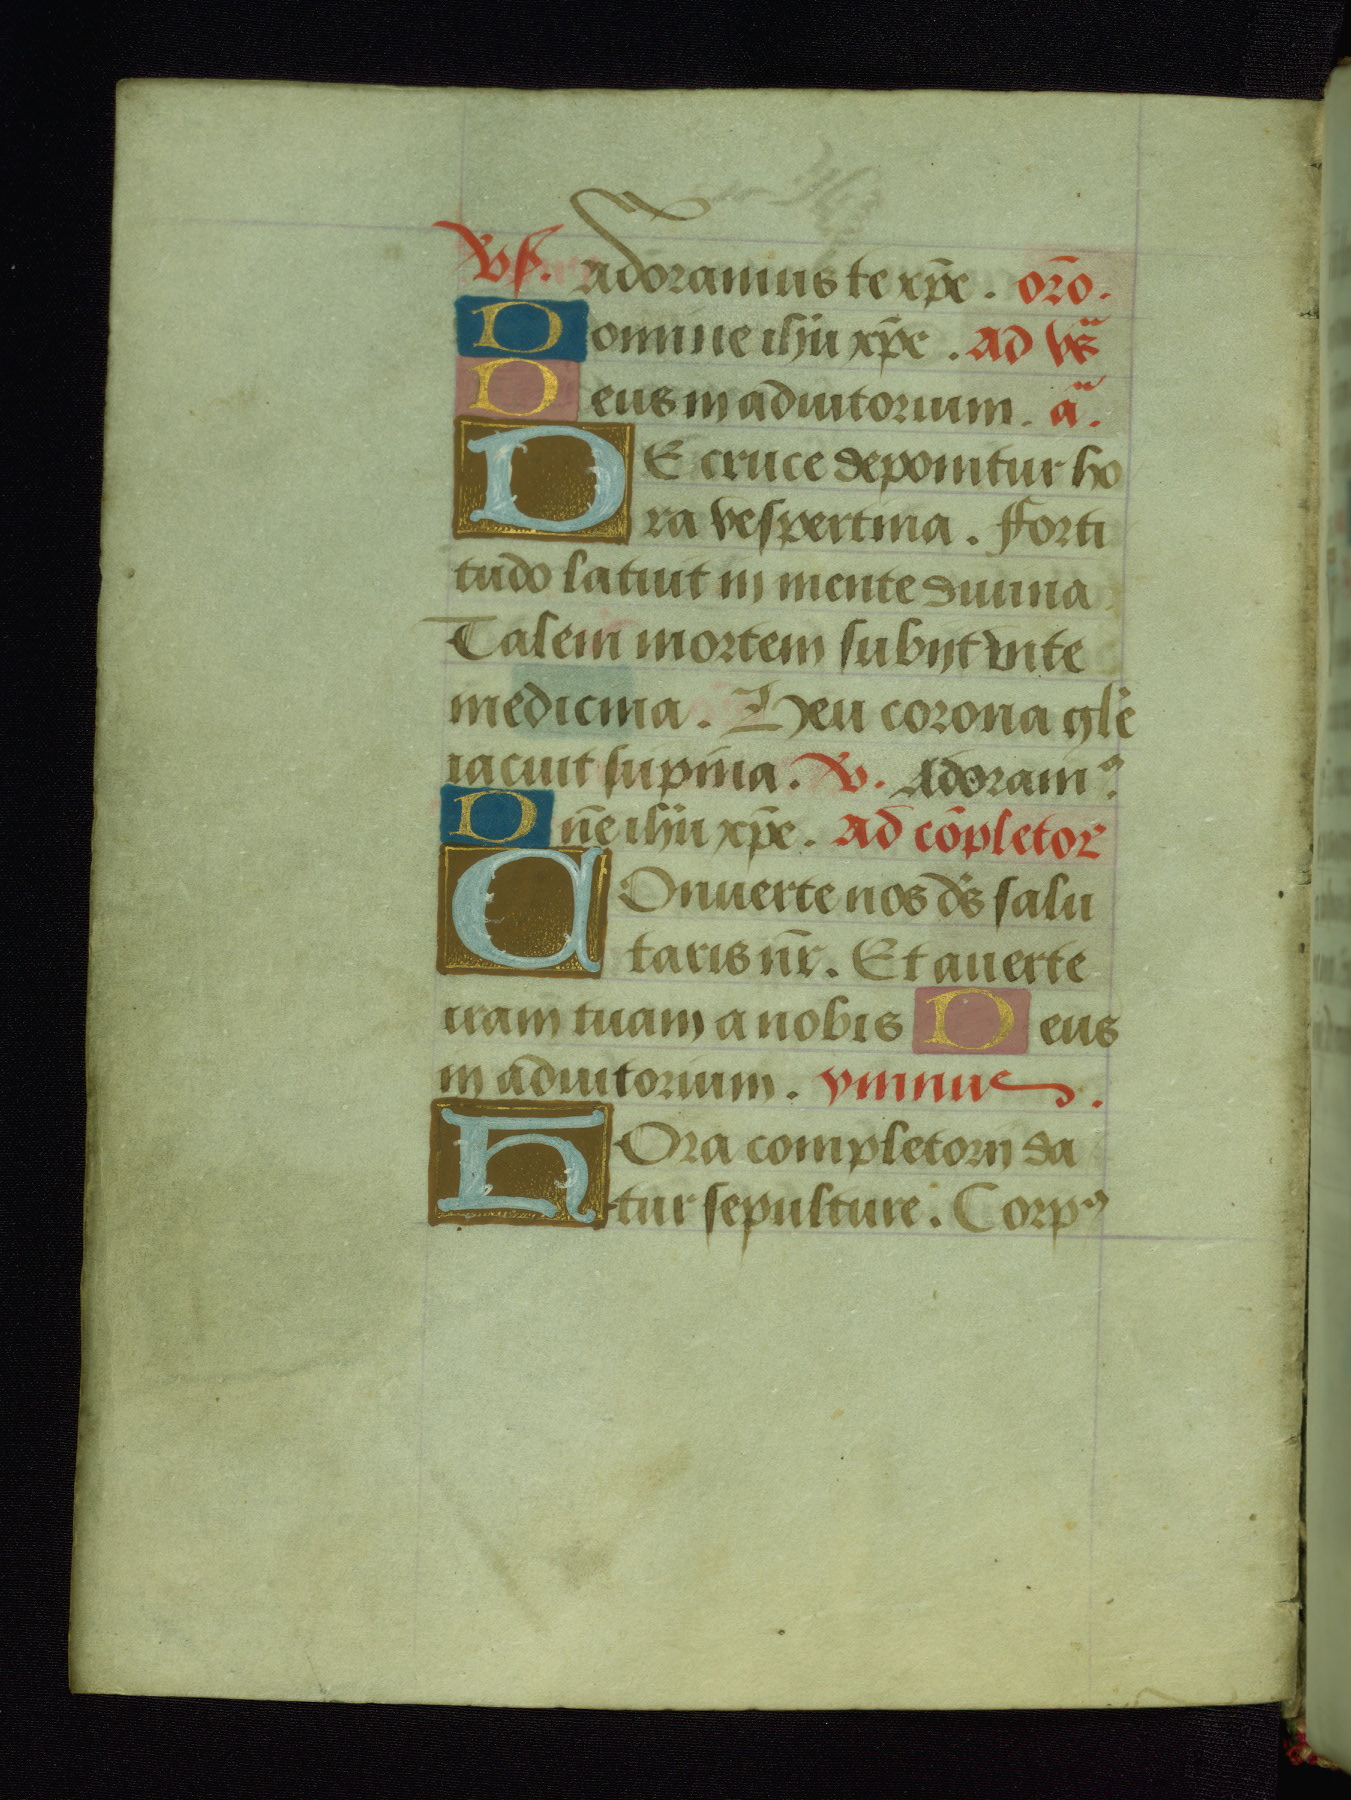 Vs. adoramus te xp̄e. orō.
Domine ihū xp̄e. Ad vs̄
Deus in adiutorium. ā.
DE cruce deponitur ho
ra vespertina. Forti
tudo latuit in mente diuina
Talem mortem subijt vite
medicina. Heu corona glē
iacuit supina. V. Adoramꝰ.
Dn̄e ihū xp̄e. Ad cōpletor
COnuerte nos ds̄ salu
taris nr̄. Et auerte
iram tuam a nobis Deus
in adiutorium. ymnus.
HOra completorij da
tur sepulture. Corpꝰ